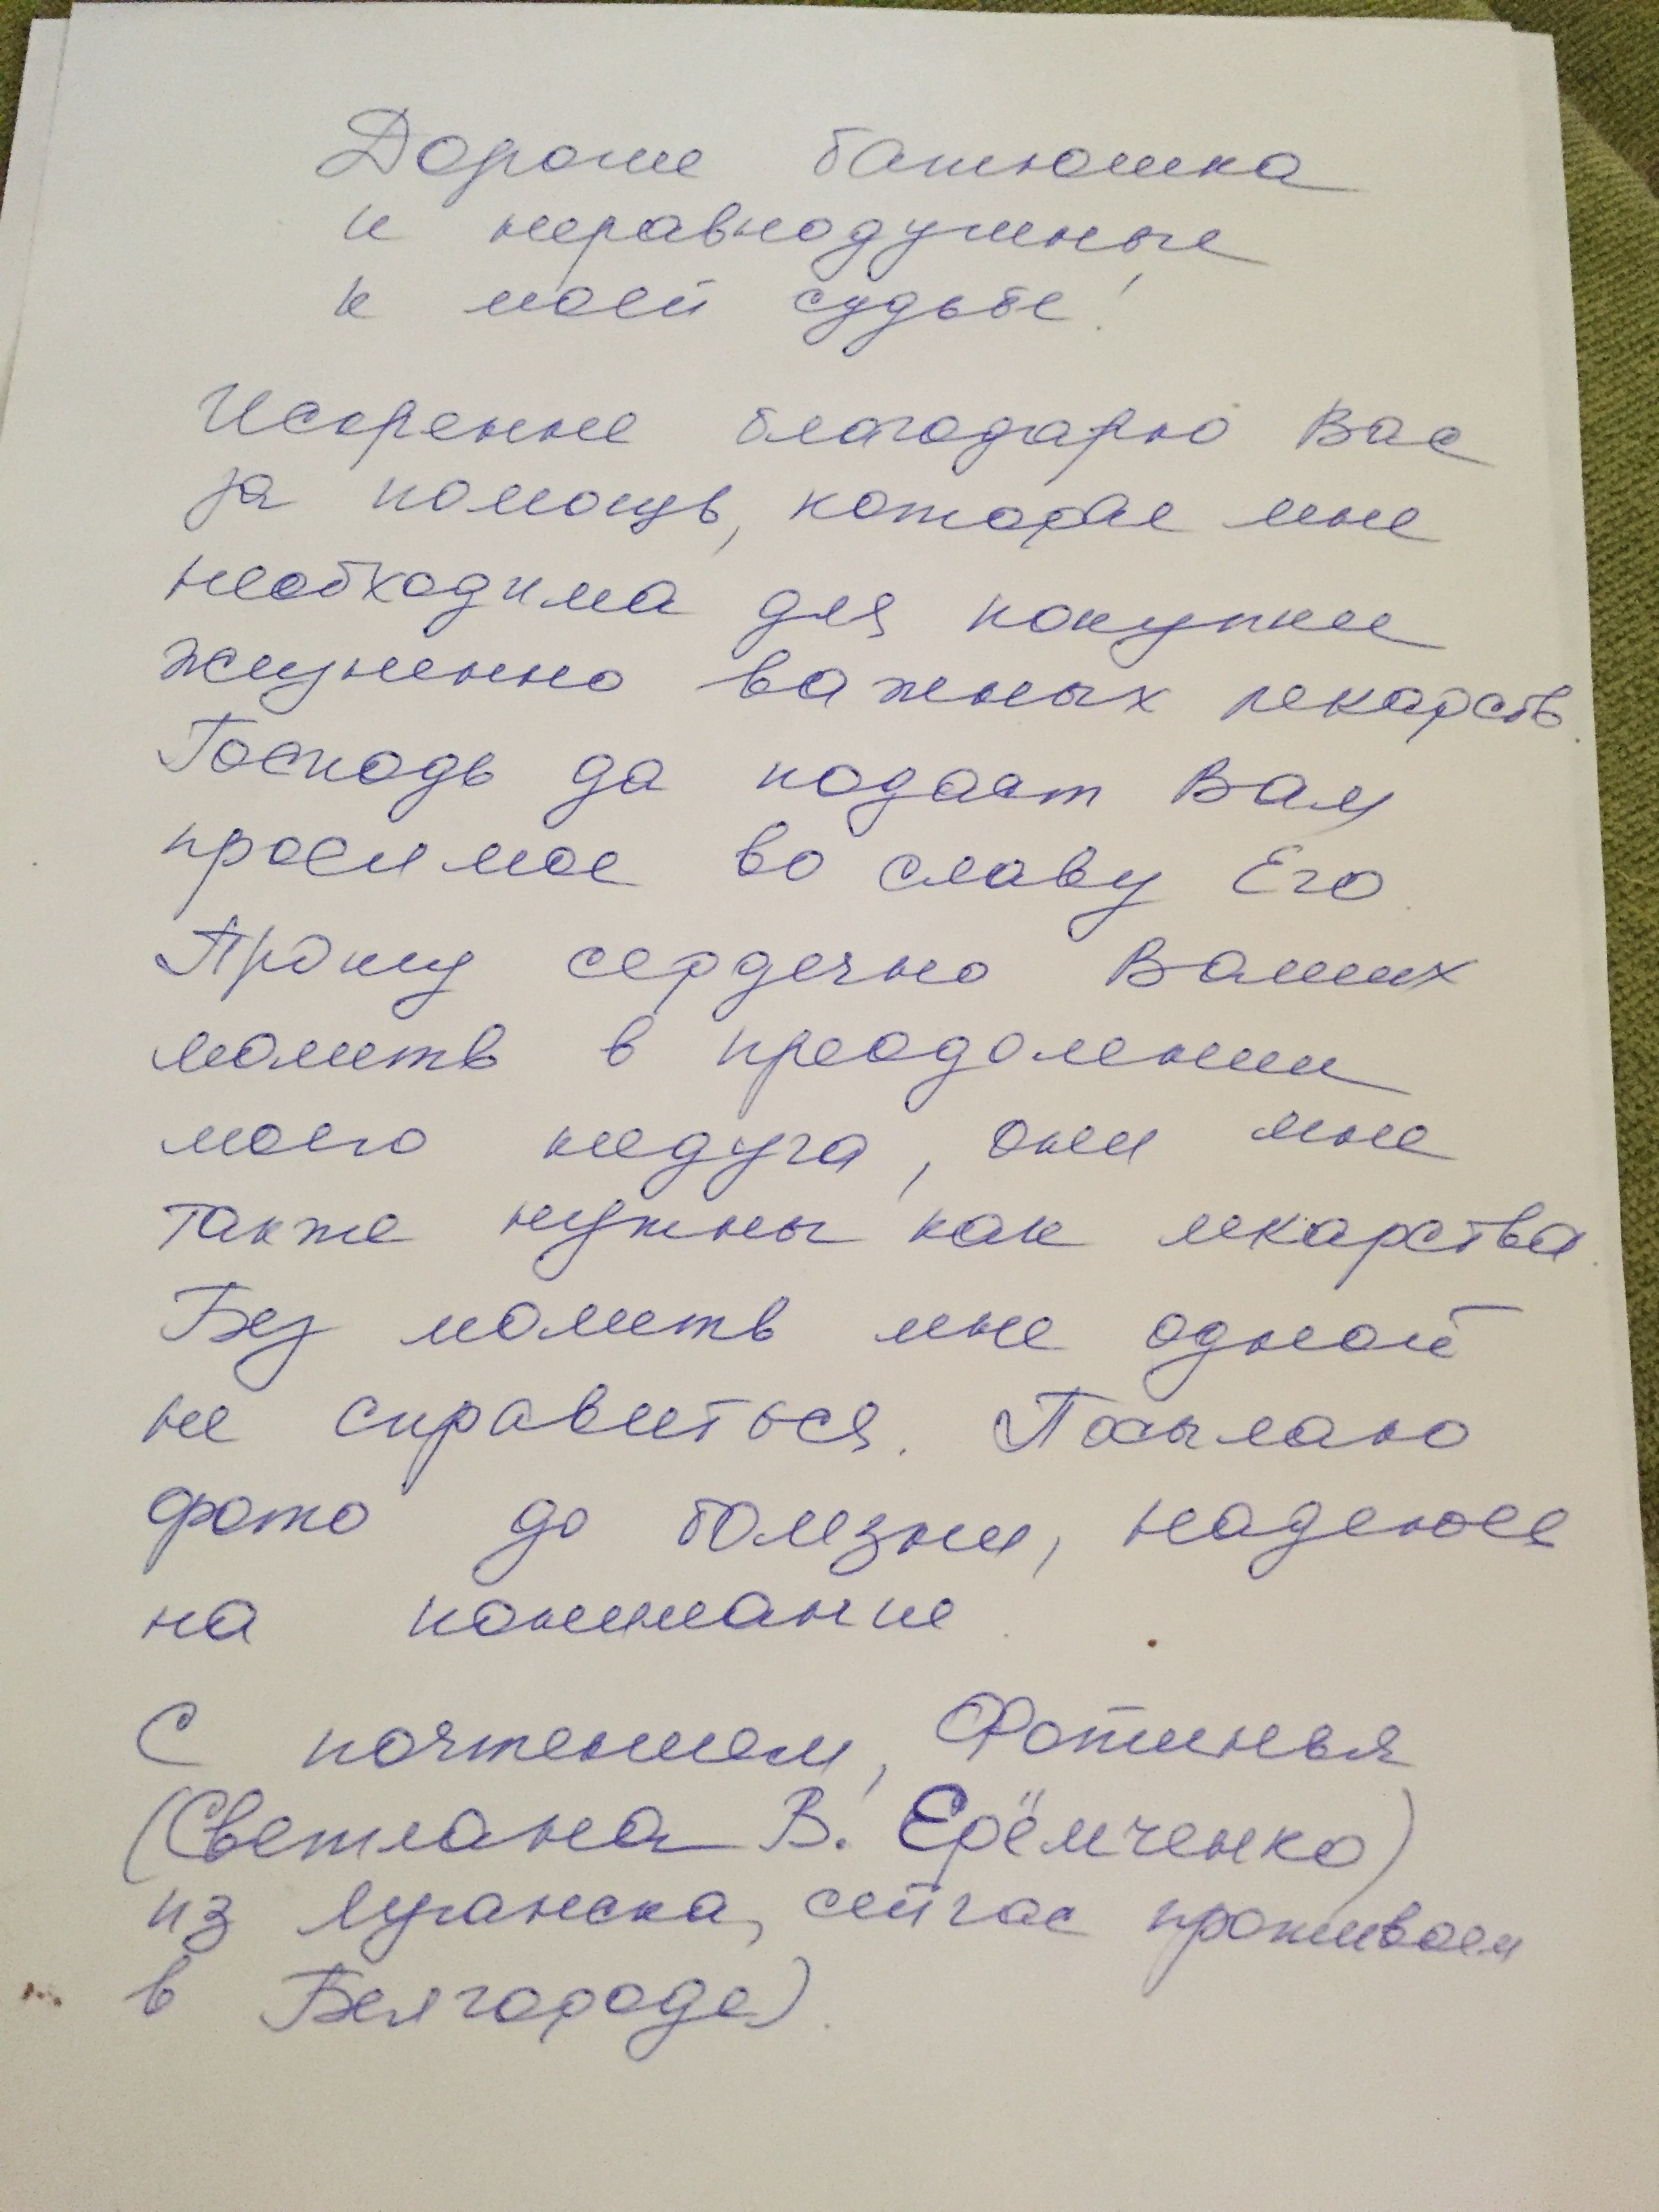 Дорогие батюшка
и неравнодушные
к моей судьбе!
Искренне благодарю Вас
за помощь, которая мне
необходима для покупки
жизненно важных лекарств.
Господь да подаст Вам
просимое во славу Его.
Прошу сердечно Ваших
молитв в преодолении
моего недуга, они мне
также нужны как лекарства.
Без молитв мне одной
не справиться. Посылаю
фото до болезни, надеюсь
на понимание.
С почтением, Фотинья
(Светлана В. Ерёмченко)
из Луганска, сейчас проживаем
в Белгороде).